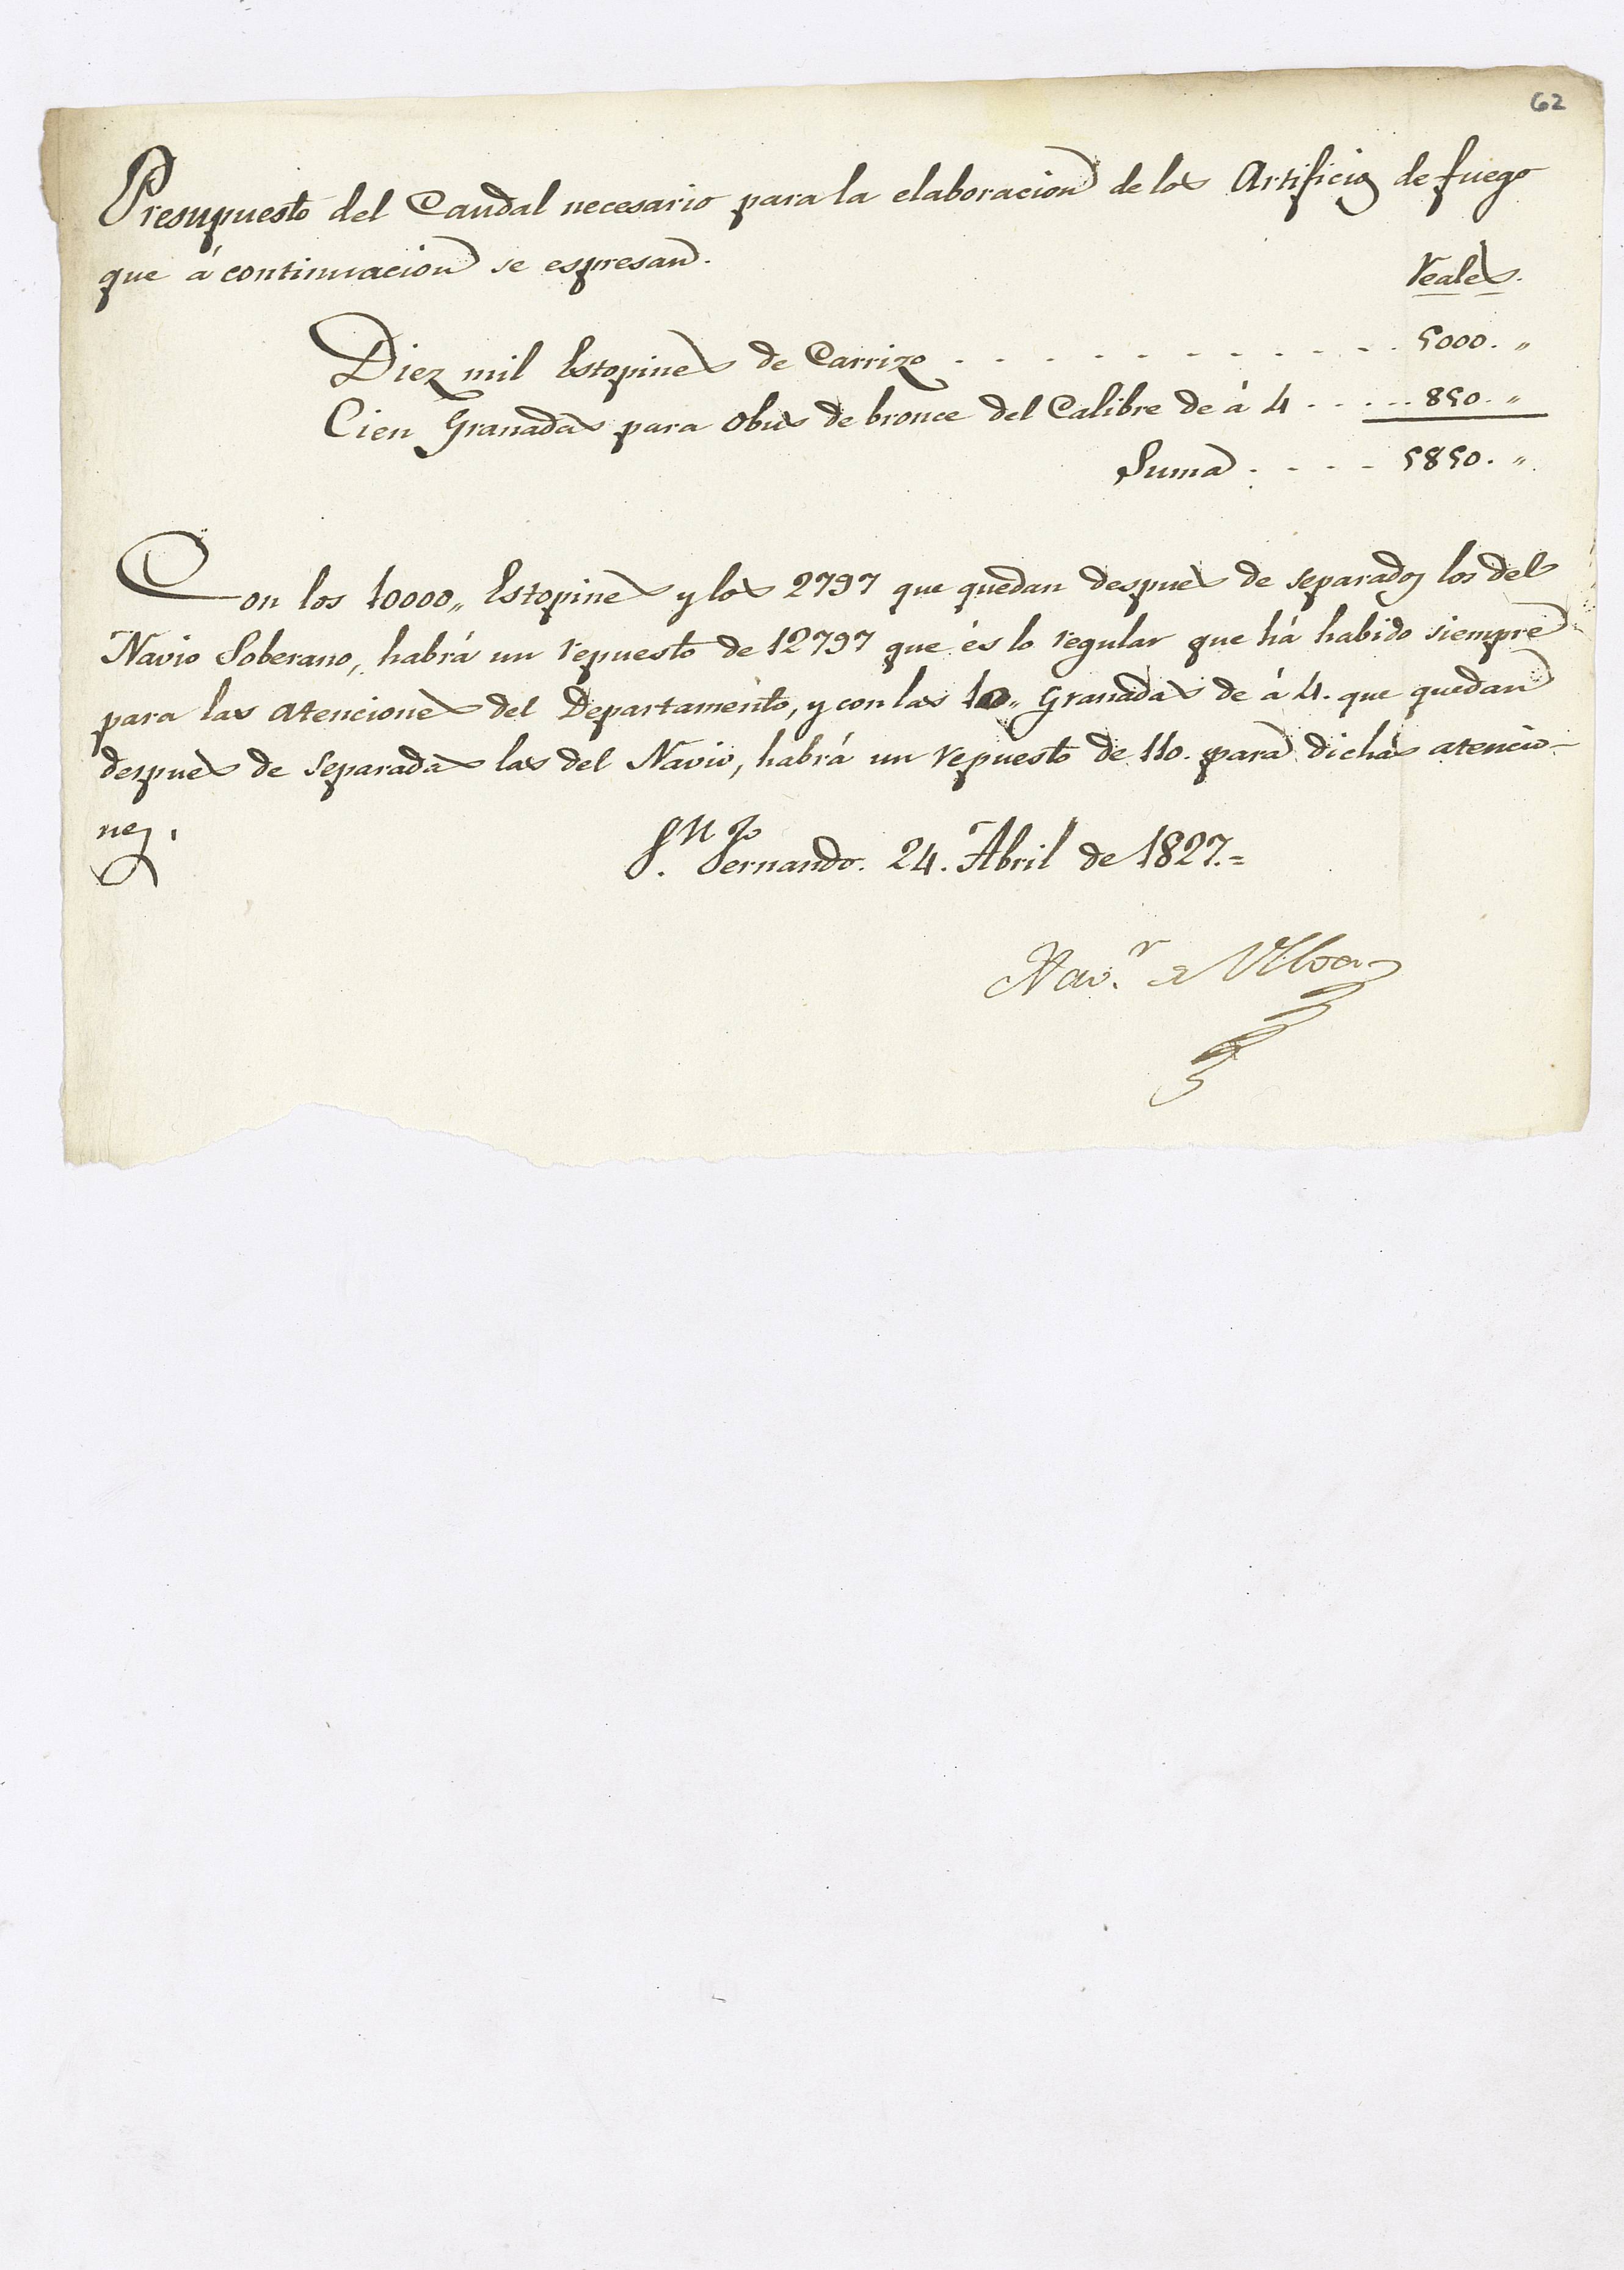 62
Presupuesto del Caudal necesario para la elaboracion de los Artificios de fuego
que á continuacion se espresan.
reales.
Diez mil Estopines de Carrizo . . . . . . . . . . . 5000. „
Cien Granadas para obus de bronce del Calibre de á 4 . . . . . 850. „
Suma . . . . 5850. „
Con los 10000„ Estopines y los 2797 que quedan despues de separados los del
Navio Soberano, habrá un repuesto de 12797 que és lo regular que há habido siempre
para las atenciones del Departamento, y con las 10„ Granadas de á 4. que quedan
despues de separadas las del Navio, habrá un repuesto de 110. para dichas atencio-
nes.
Sn. Fernando. 24. Abril de 1827.=
Ulloa